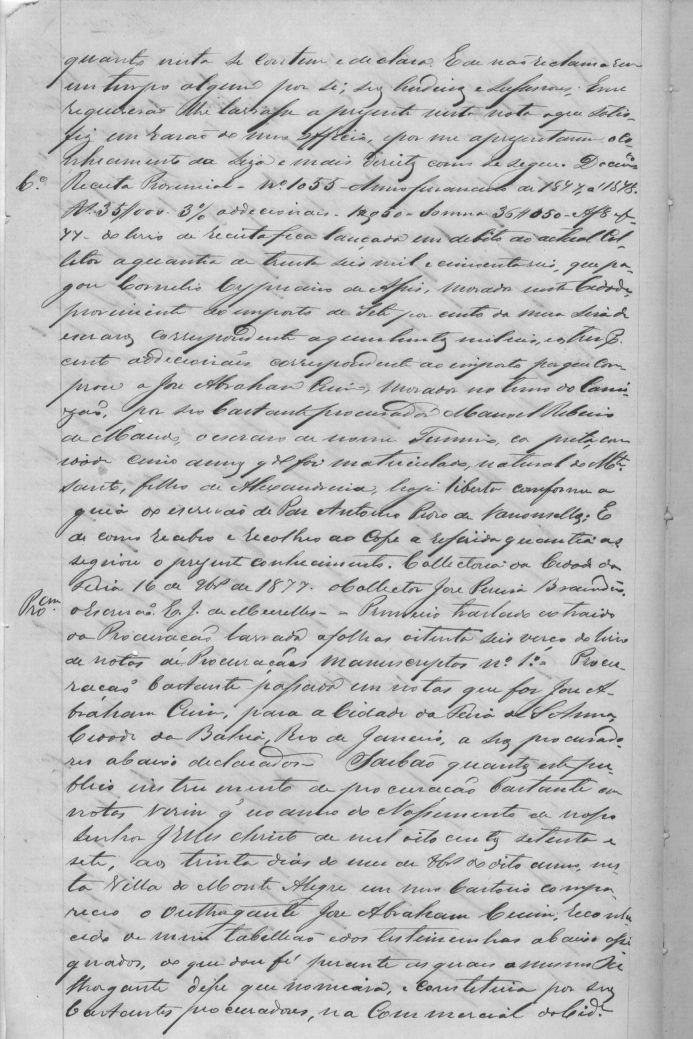 quanto nesta se contem e declara. E de não reclamarem
em tempo algum por si, seus herdeiros e sucessores. E me
requererão lhe lavrasse a presente nesta nota a que satis-
fiz em razão de meu officio, e por me apresentarem o co-
nhecimento da siza e mais direitos como se segue.
C.º Receita Provincial - nº 1055 - Anno financeiro de 1877 a 1878.
Rs. 35//000. 3% addecionais - 1:050 - Somma 36#050 - A f 8
77 - do livro de receita fica lançada em debito do actual Col-
lector a quantia de trinta seis mil e cincoenta reis, que pa-
gou Cornelio Cypriano de Assis, morador nesta Cidade,
proveniente do imposto de sete por cento da meia siza de
escravos correspondente a quinhentos mil reis, e tres
cento addecionáes correspondente ao imposto porque com-
prou a Jose Abraham Cuim, morador no termo do Cami-
zão, por seo bastante procurador Manoel Ribeiro
de Macedo, o escravo de nome, côr preta, com
vinte cinco annos qdo foi matriculado, natural de Mte
Santo, filho de Alexandrina, hoje liberta conforme a
guia do escrivão de Paz Antonio Pedro de Vasconsellos; E
de como recebeo e recolheo ao Cofre a referida quantia as-
signou o presente conhecimento. Collectoria da Cidade da
Feira 16 de 9bro de 1877. O Collector Jose Pereira Brandão.
Procm. O Escrivão E. J. de Meirelles - Primeiro traslado extraido
da Procuração lavrada a folhas oitenta seis verço do livro
de notas de Procurações manuscriptos nº 1º - Procu-
ração bastante passada em notas que fas Jose A-
braham Cuim, para a Cidade da Feira de S. Anna,
Cidade da Bahia, Rio de Janeiro, a seus procurado-
res abaixo declarados - Saibão quantos este pu-
blico instrumento de procuração bastante em
notas virem q' no anno do Nascimento de nosso
senhor JEsus christo de mil oito centos setenta e
sete, aos trinta dias do mez de 8bro do dito anno, nes-
ta Villa do Monte Alegre em meu Cartorio compa-
receo o outhorgante Jose Abraham Cuim, reconhe-
cido de mim tabellião e das testimunhas abaixo assi-
gnados, do que dou fé perante as quais o mesmo Ou-
thorgante disse que nomeiava, e constetuia por seus
bastantes procuradores, na Commercial da Cide